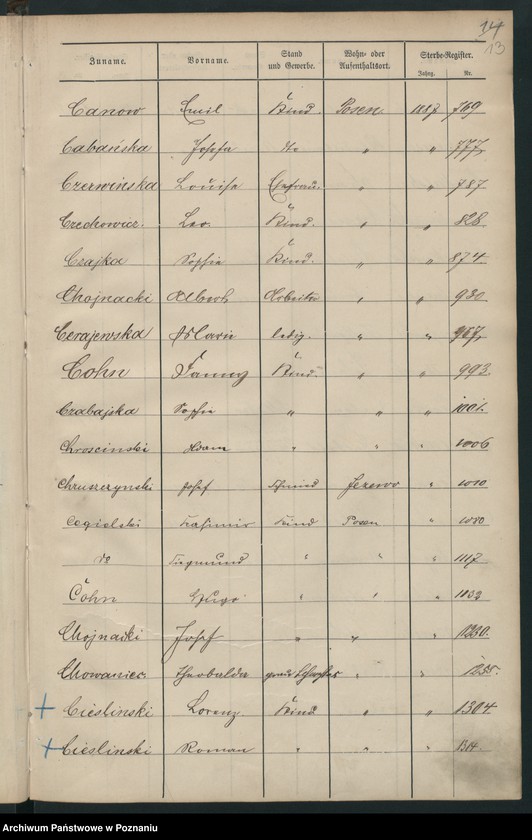 14
13
Zuname. Vorname. Stand und Gewerbe. Wohn- oder Aufenthaltsort. Sterbe-Register. Jahrg. Nr.
Canow Emil Kind. Posen 1887 769
Cabańska Josefa do " " 777
Czerwińska Louise Ehefrau. " " 787
Czechowicz. Leo. Kind. " " 828
Czajka Sophie Kind. " " 874.
Chojnacki Albert Arbeiter " " 930
Cerajewska Marie ledig. " " 967
Cohn Fanny Kind. " " 993.
Czabajska Sophie " " " 1001.
Chroscinski Adam " " " 1006
Chruszczynski Josef Schmied Jezewo " 1010
Cegielski Kasimir Kind Posen " 1080
do Siegmund " " " 1117
Cohn Hugo " " 1132
Chojnacki Josef " " " 1230.
Chowaniec Theobalda " "
+ Cieslinski Lorenz Kind " " 1304
+ Cieslinski Roman " " " 1314.
Archiwum Państwowe w Poznaniu